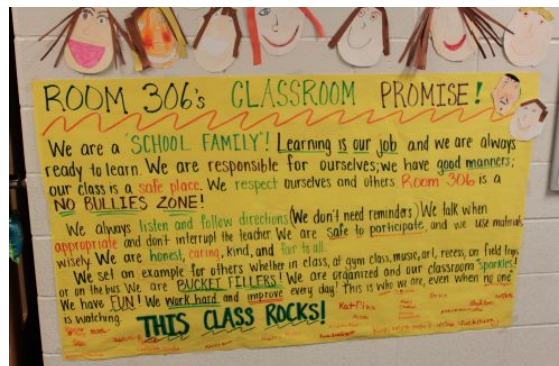 ROOM 306's CLASSROOM PROMISE!
We are a "SCHOOL FAMILY"! Learning is our job and we are always
ready to learn. We are responsible for ourselves; we have good manners;
our class is a safe place. We respect ourselves and others Room 306 is a
NO BULLIES ZONE!
We always listen and follow directions (We don't need reminders) We talk when
appropriate and don't interrupt the teacher We are safe to participate, and we use materials
wisely. We are honest, caring, kind, and fair to all.
We set an example for others whether in class, at gym class, music, art, recess, on field trips
or on the bus. We are BUCKET FILLERS! We are organized and our classroom "sparkles!
We have FUN! We work hard and improve every day! This is who we are, even when no one"
is watching.
THIS CLASS ROCKS!